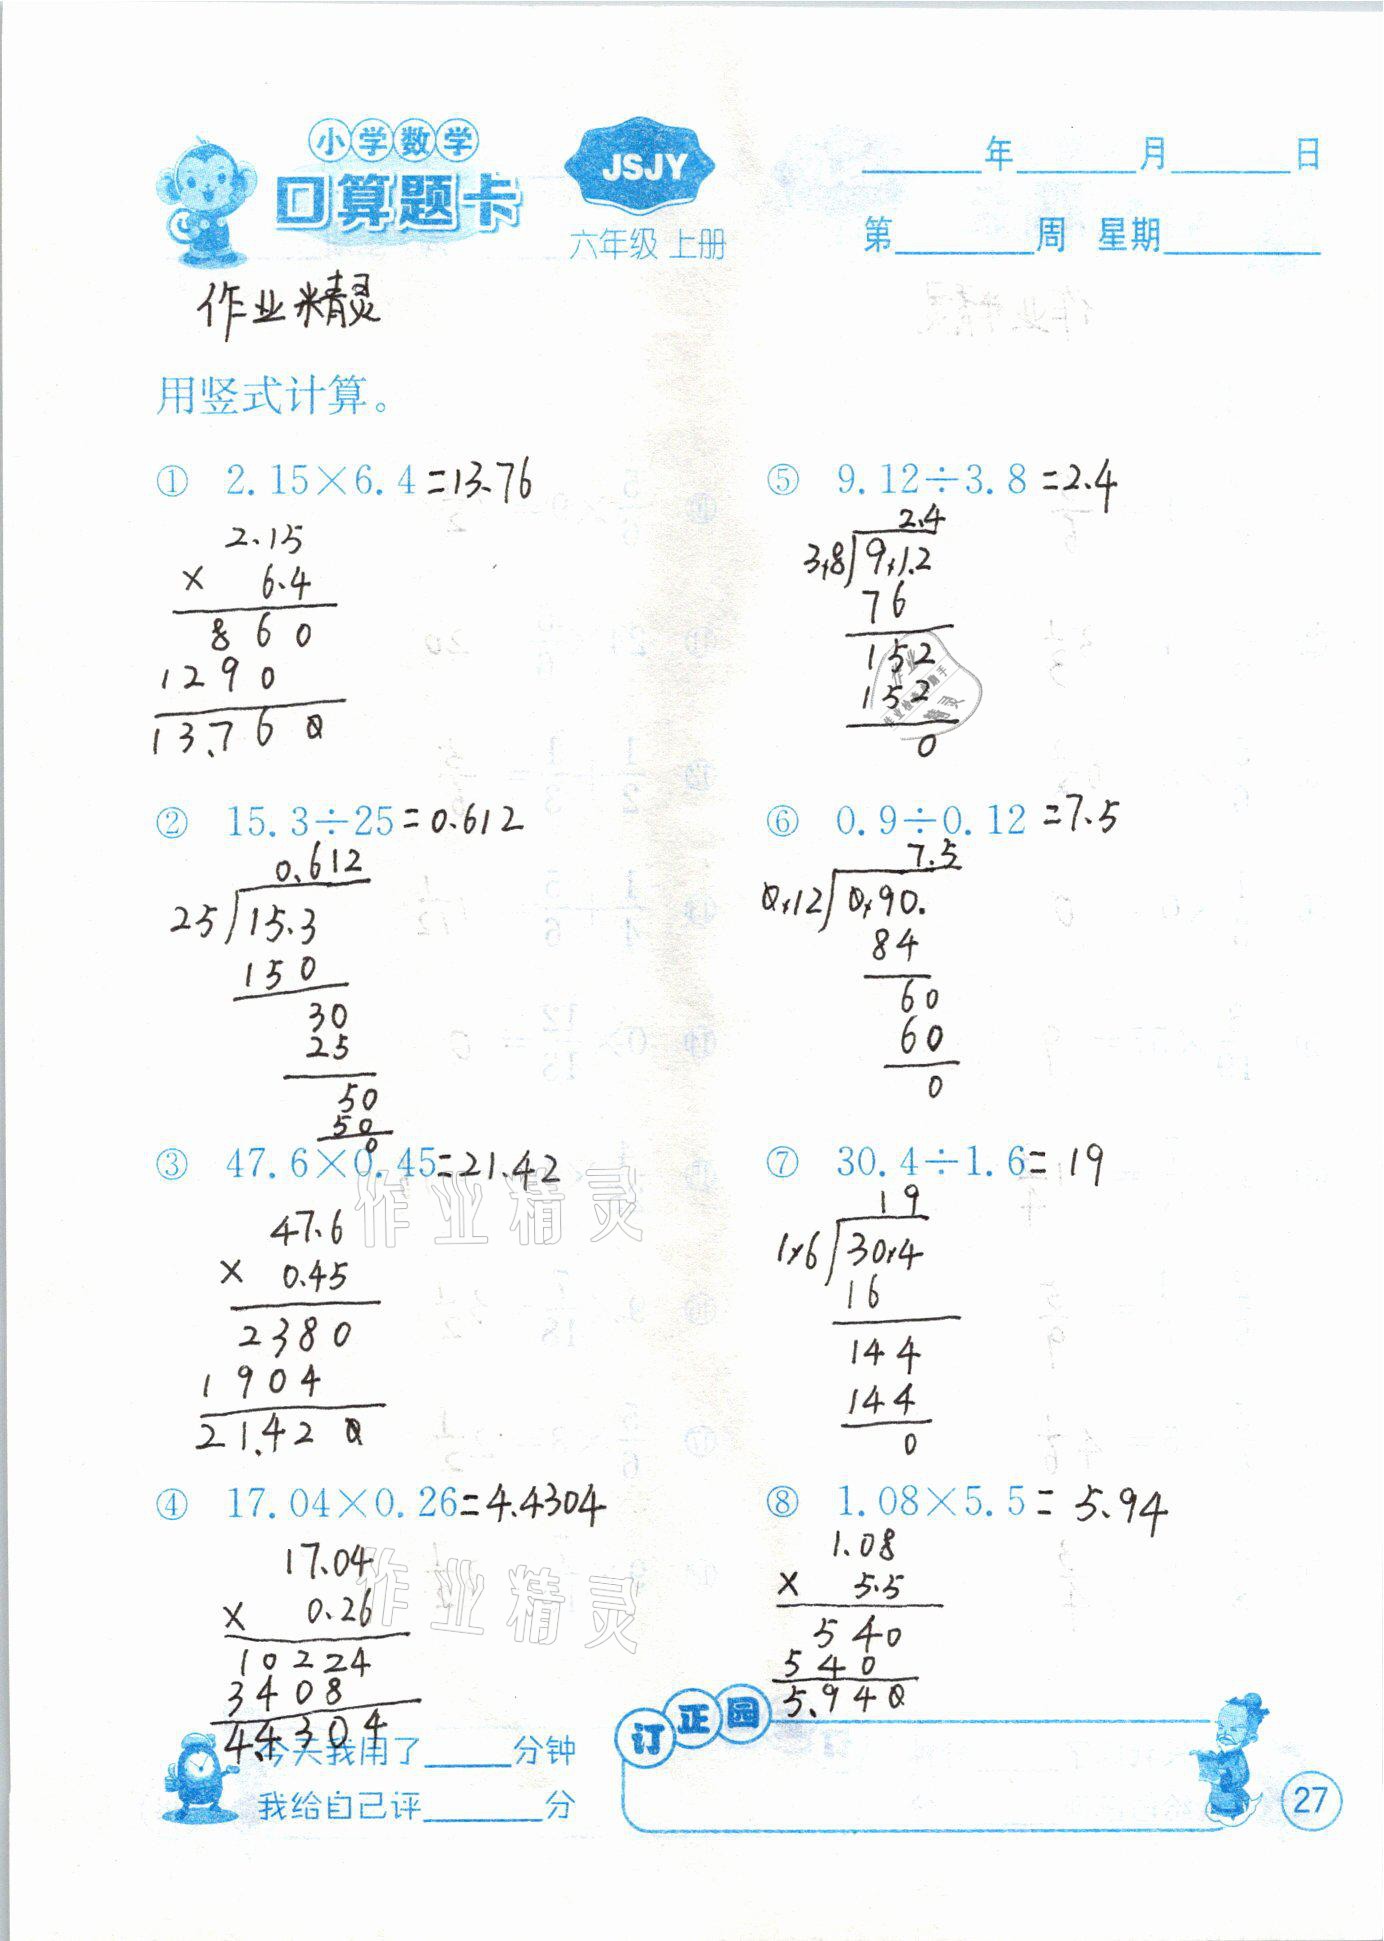 小学数学
口算题卡
JSJY
六年级 上册
____年____月____日
第____周 星期____
作业精灵
用竖式计算。
① 2.15×6.4=13.76
2.15
× 6.4
860
1290
13.760
② 15.3÷25=0.612
0.612
25 15.3
150
30
25
50
50
0
③ 47.6×0.45=21.42
47.6
× 0.45
2380
1904
21.420
④ 17.04×0.26=4.4304
17.04
× 0.26
10224
3408
4.4304
⑤ 9.12÷3.8=2.4
2.4
3.8 9.1.2
76
152
152
0
⑥ 0.9÷0.12=7.5
7.5
0.12 0.90.
84
60
60
0
⑦ 30.4÷1.6=19
19
1.6 30.4
16
144
144
0
⑧ 1.08×5.5=5.94
1.08
× 5.5
540
540
5.940
作业精灵
作业精灵
今天我用了____分钟
我给自己评____分
订正园
27